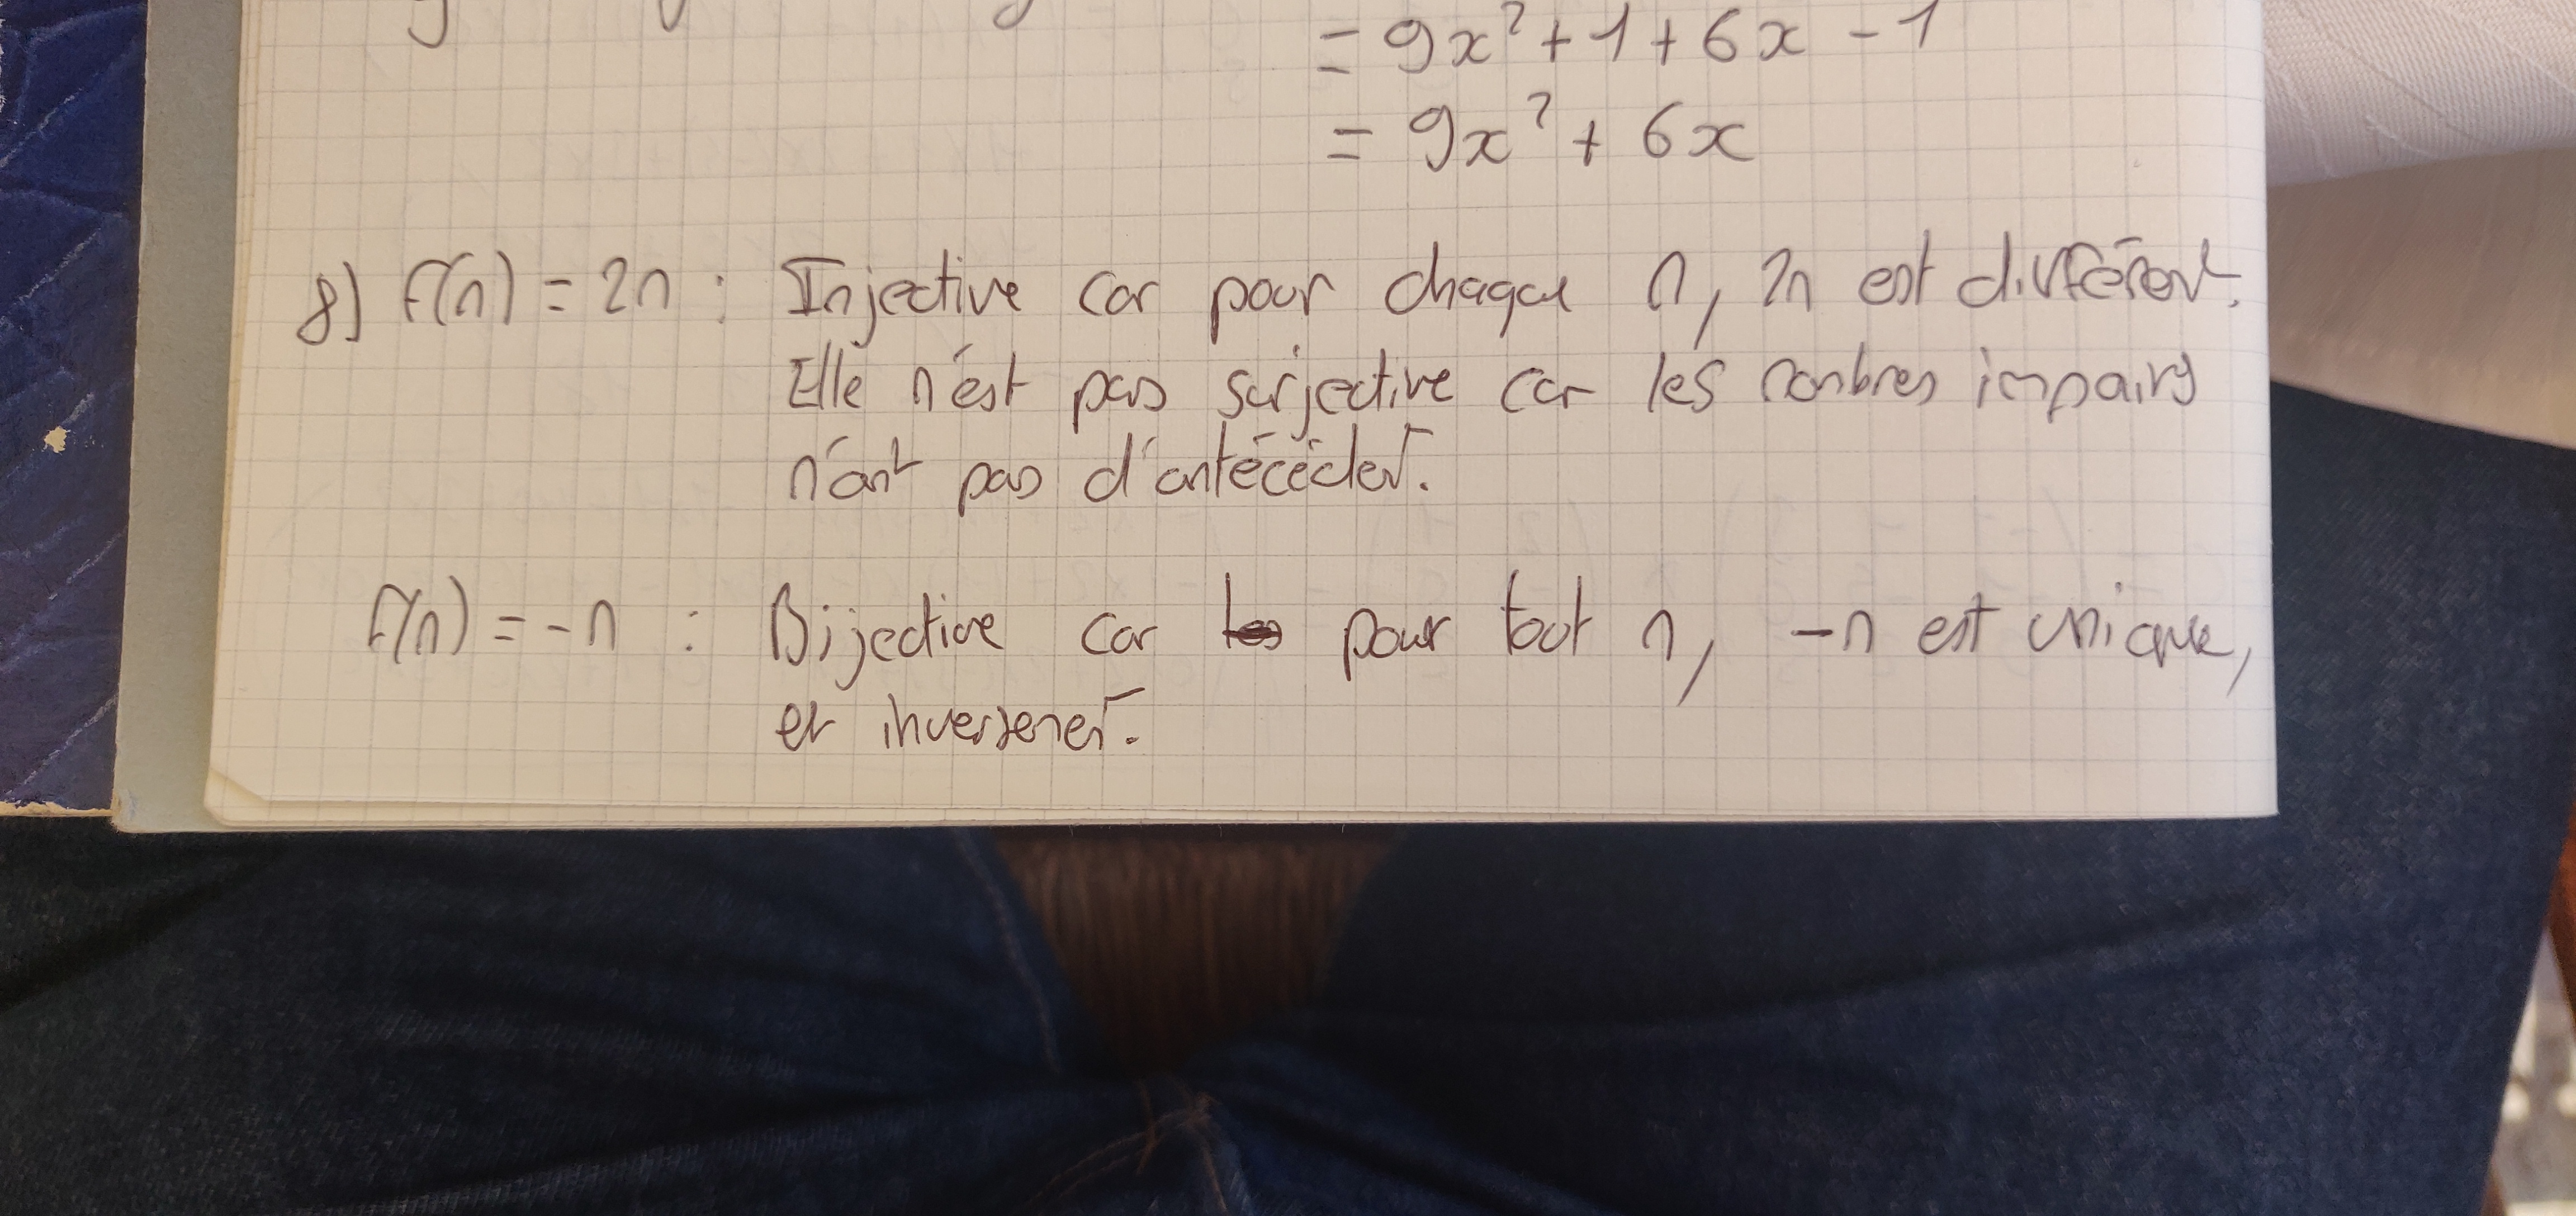 = 9x² + 1 + 6x - 1
= 9x² + 6x
8) f(n) = 2n : Injective car pour chaque n, 2n est différent.
Elle n'est pas surjective car les nombres impairs
n'ont pas d'antécédent.
f(n) = -n : Bijective car pour tout n, -n est unique,
et inversement.